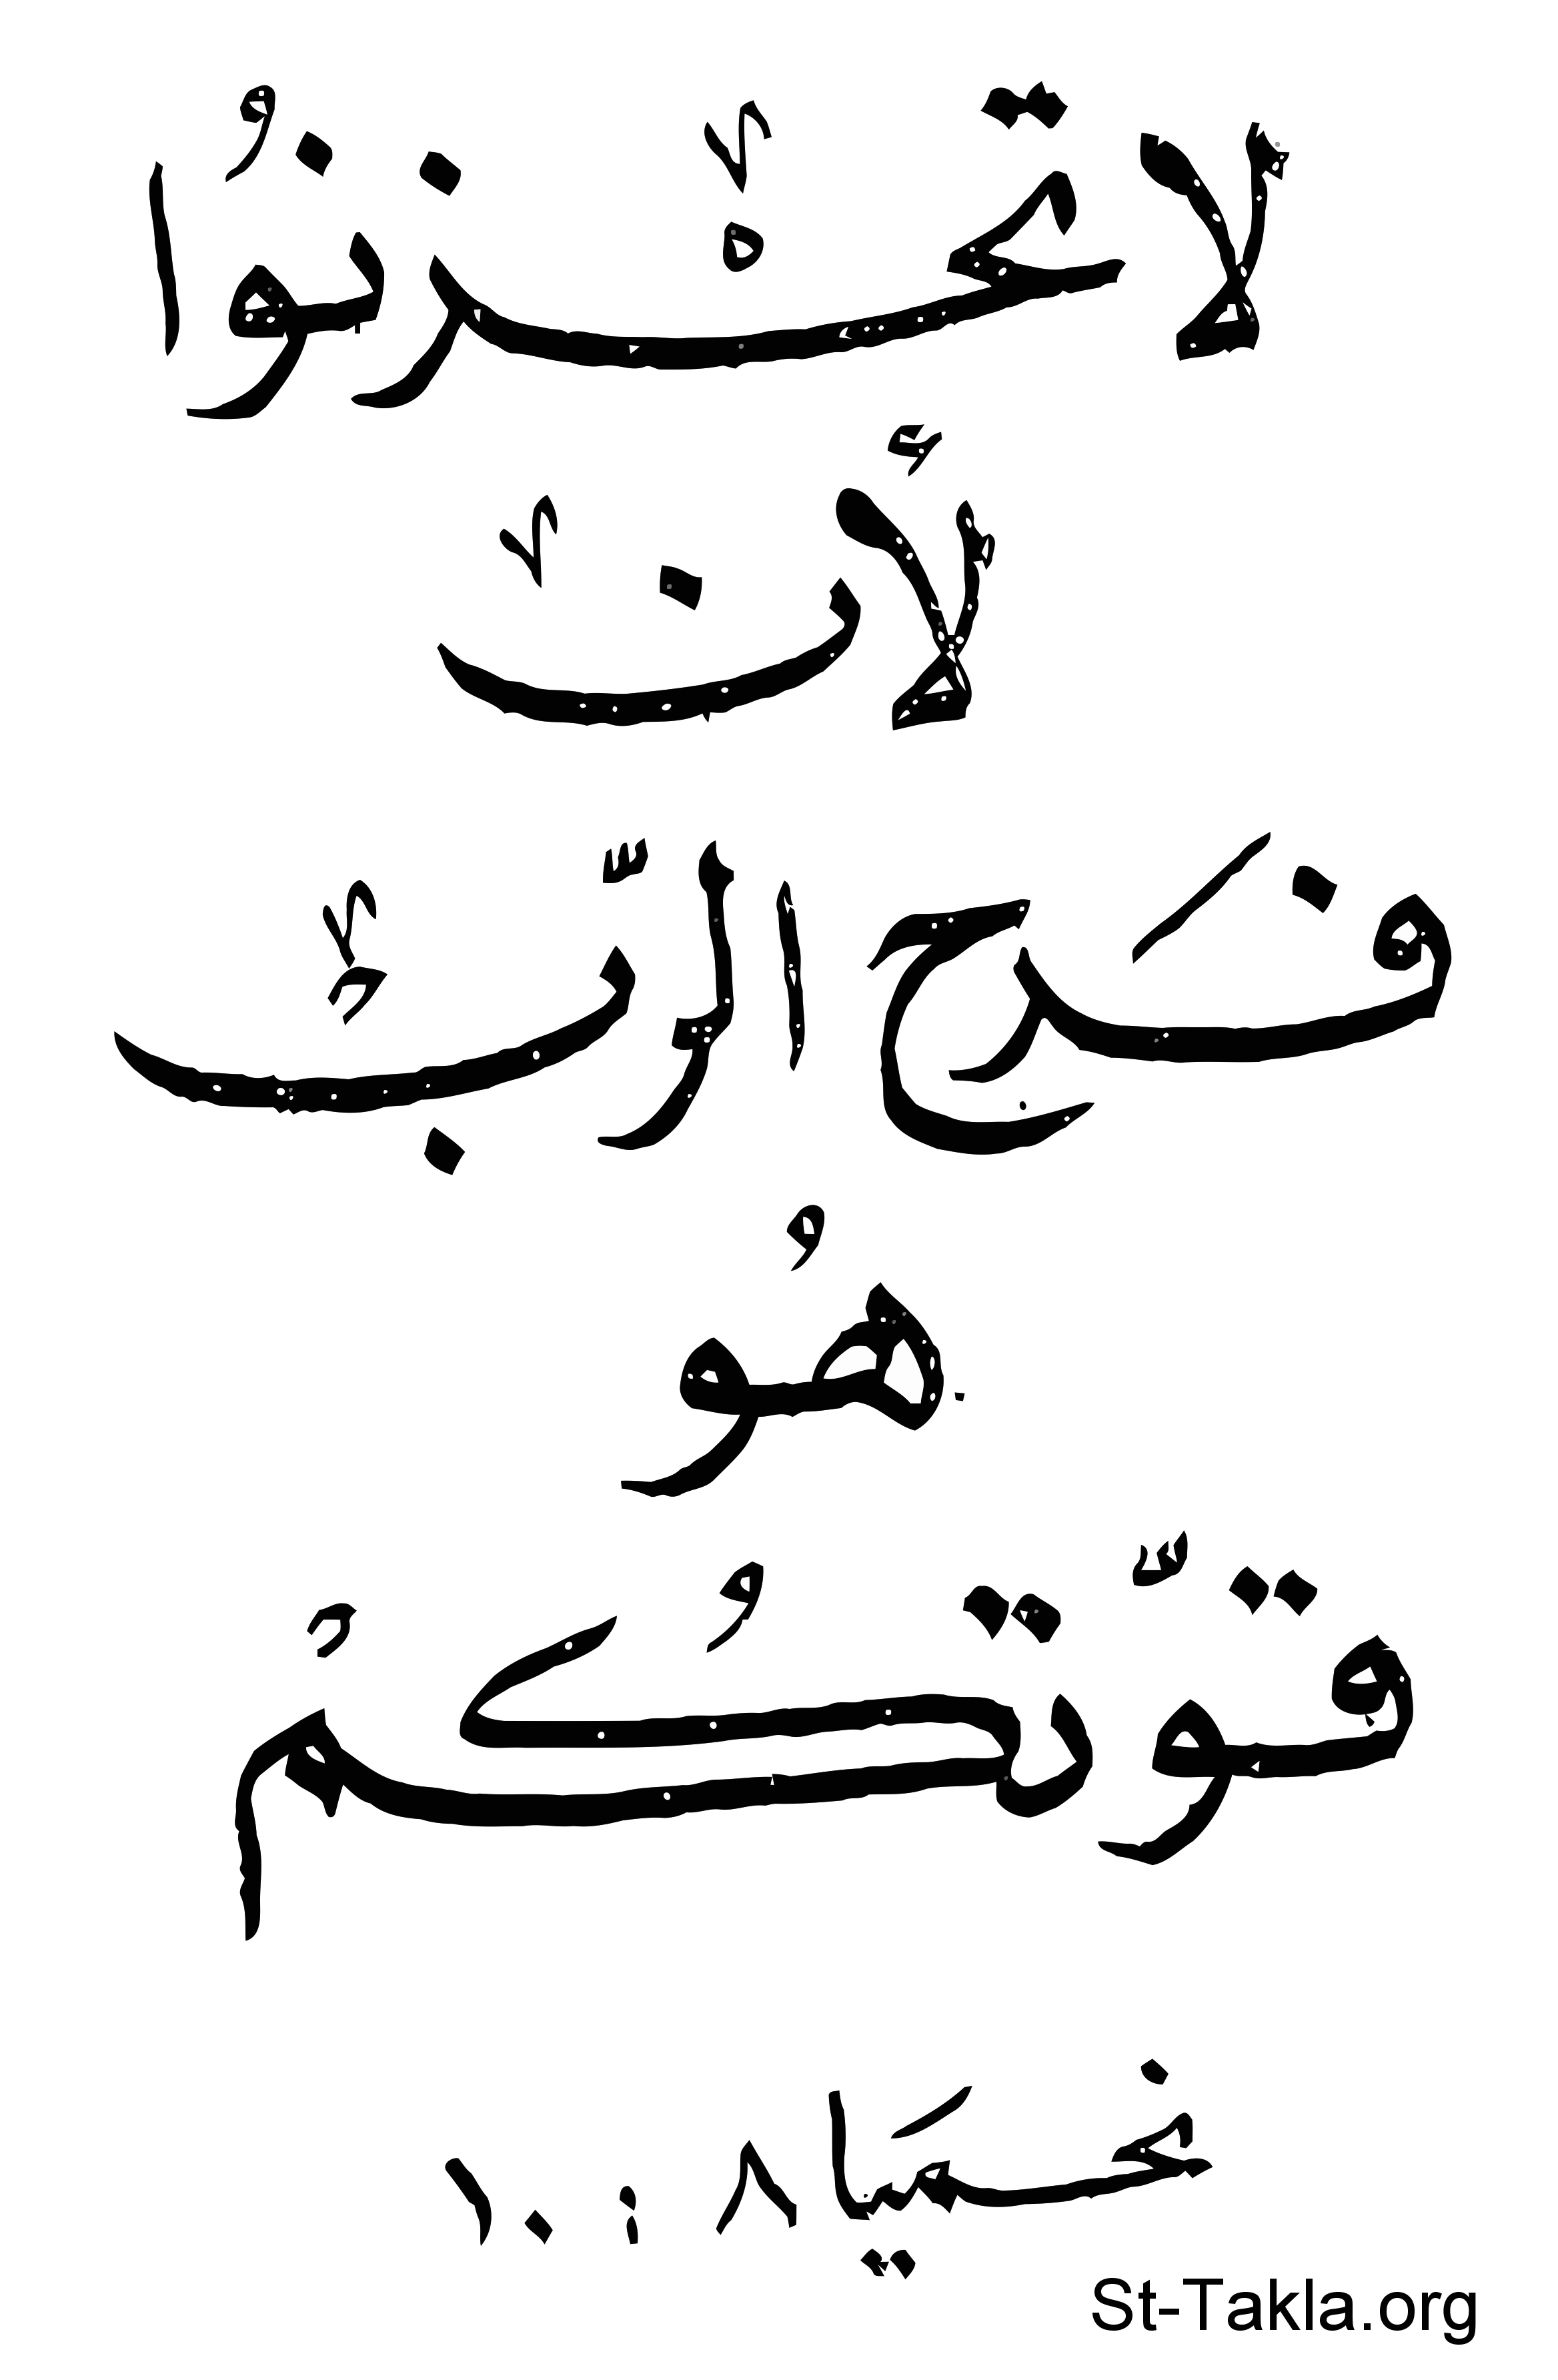 لا تحزنوا
لأن
فرح الرّب
هُو
قوّتكُم
نحَميا ٨ : ١٠
St-Takla.org